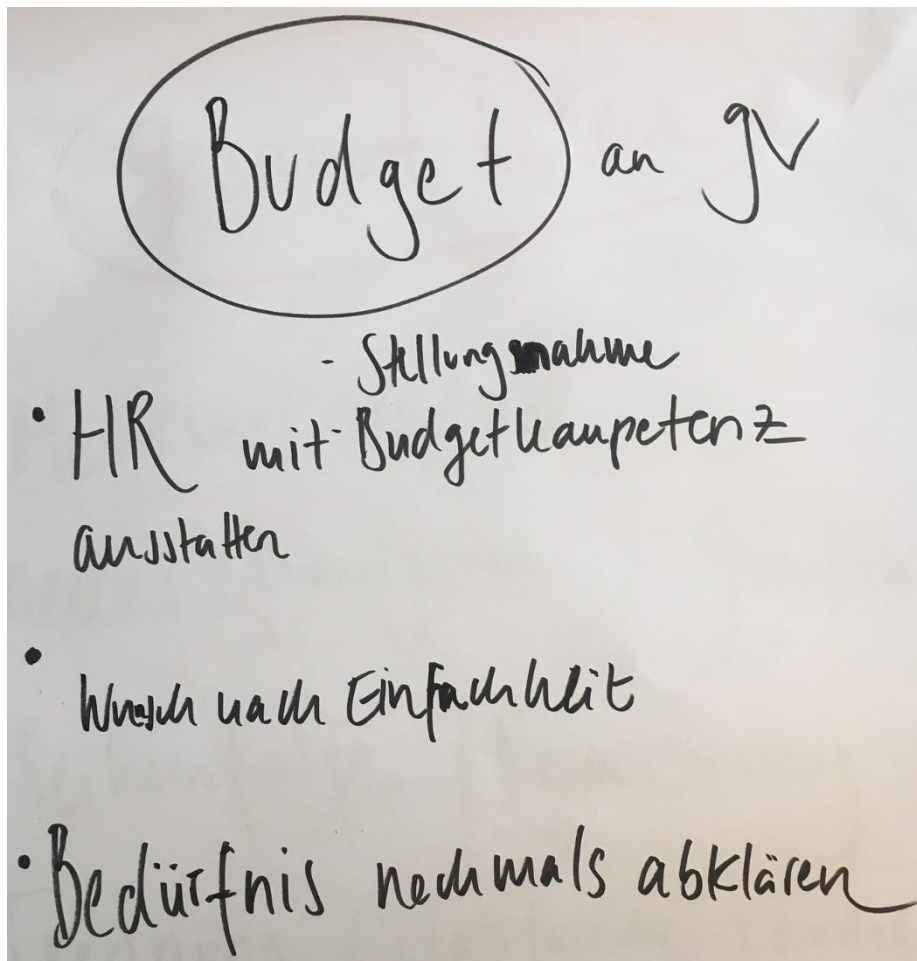 Budget an gv
- Stellungnahme
• HR mit Budgetkompetenz
ausstatten
• Wunsch nach Einfachheit
• Bedürfnis nochmals abklären